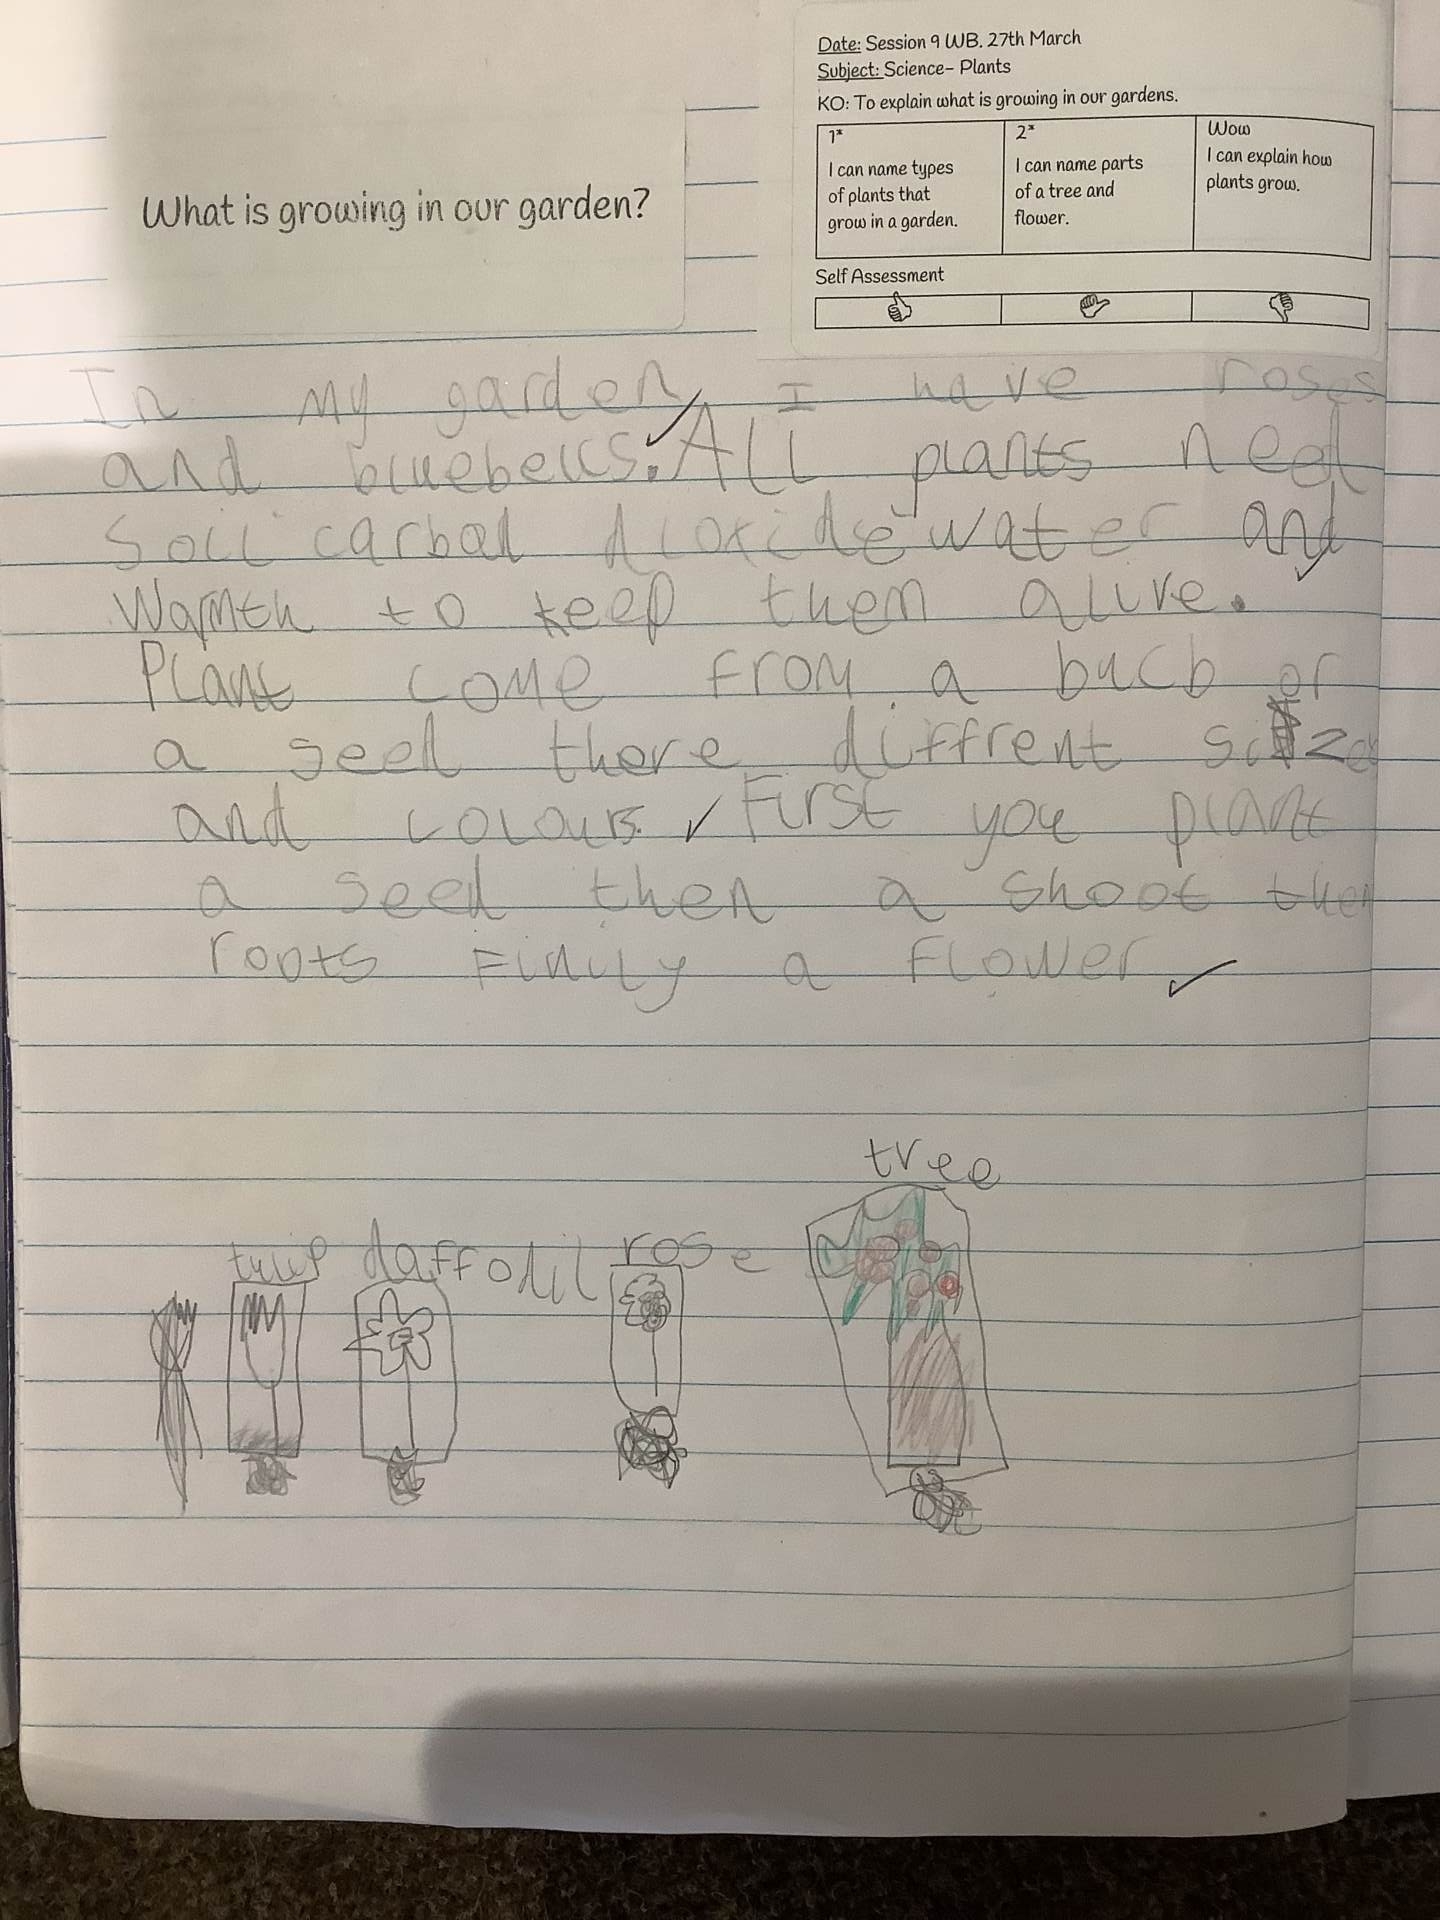 Date: Session 9 WB. 27th March
Subject: Science- Plants
KO: To explain what is growing in our gardens.
1*
I can name types
of plants that
grow in a garden.
2*
I can name parts
of a tree and
flower.
Wow
I can explain how
plants grow.
Self Assessment
What is growing in our garden?
In my garden I have roses
and bluebells. All plants need
soil carbal dioxide water and
warmth to keep them alive.
Plant come from a bulb or
a seed there diffrent sizes
and colours. First you plant
a seed then a shoot then
roots Finily a flower
tree
tulip daffodil rose